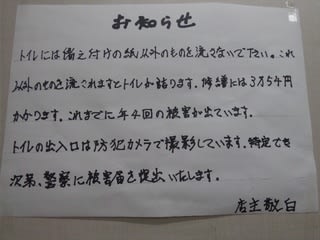 お知らせ
トイレには備え付けの紙以外のものを流さないで下さい。これ
以外のものを流されますとトイレが詰ります。修繕には3万5千円
かかります。これまでに年4回の被害が出ています。
トイレの出入口は防犯カメラで撮影しています。特定でき
次第、警察に被害届を提出いたします。
店主敬白